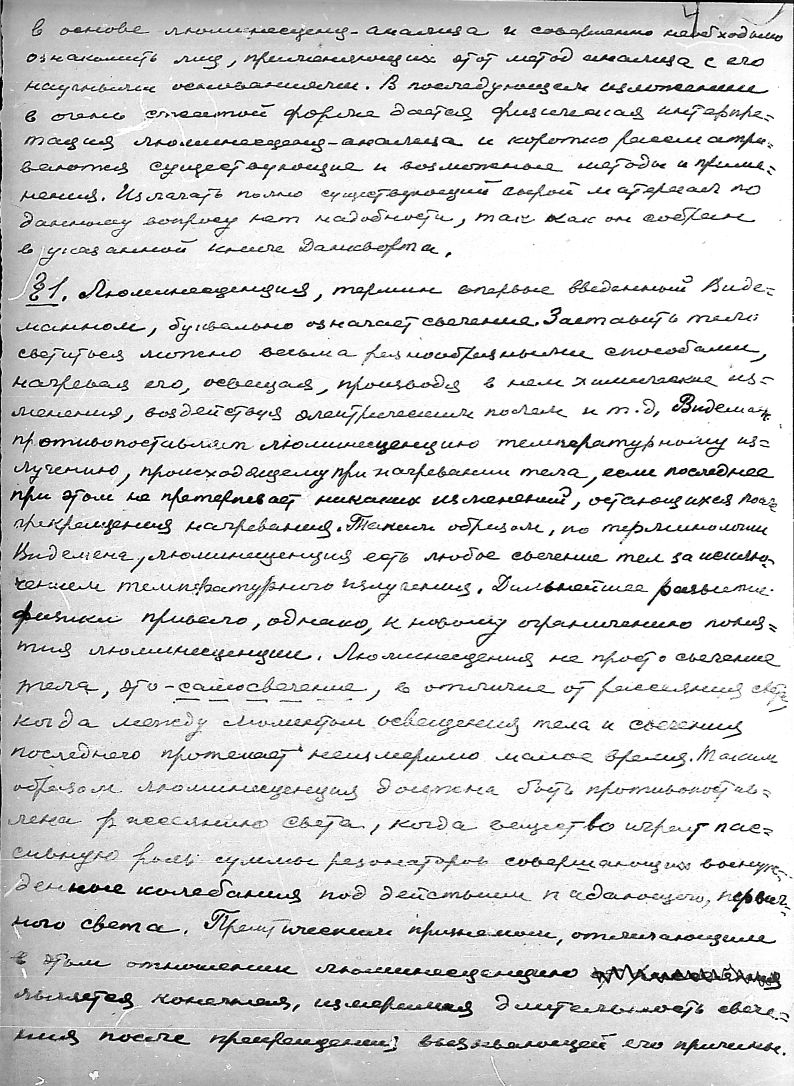 4
в основе люминесценц-анализа и совершенно необходимо
ознакомить лиц, применяющих этот метод анализа с его
научными основаниями. В последующем изложении
в очень сжатой форме дается физическая интерпре-
тация люминесценц-анализа и коротко рассматри-
ваются существующие и возможные методы и приме-
нения. Излагать полно существующий сырой материал по
данному вопросу нет надобности, так как он собран
в указанной книге Данкворта.
§1. Люминесценция, термин впервые введенный Виде-
манном, буквально означает свечение. Заставить тело
светиться можно весьма разнообразными способами,
нагревая его, освещая, производя в нем химические из-
менения, воздействуя электрическим полем и т.д. Видеманн
противопоставляет люминесценцию температурному из-
лучению, происходящему при нагревании тела, если последнее
при этом не претерпевает никаких изменений, остающихся после
прекращения нагревания. Таким образом, по терминологии
Видемана, люминесценция есть любое свечение тел за исклю-
чением температурного излучения. Дальнейшее развитие
физики привело, однако, к новому ограничению поня-
тия люминесценции. Люминесценция не просто свечение
тела, это - самосвечение, в отличие от рассеяния света,
когда между моментом освещения тела и свечения
последнего протекает неизмеримо малое время. Таким
образом люминесценция должна быть противопостав-
лена рассеянию света, когда вещество играет пас-
сивную роль суммы резонаторов совершающих вынуж-
денные колебания под действием падающего, первич-
ного света. Практическим признаком, отличающим
в этом отношении люминесценцию
является конечная, измеримая длительность свече-
ния после прекращения вызывающей его причины.